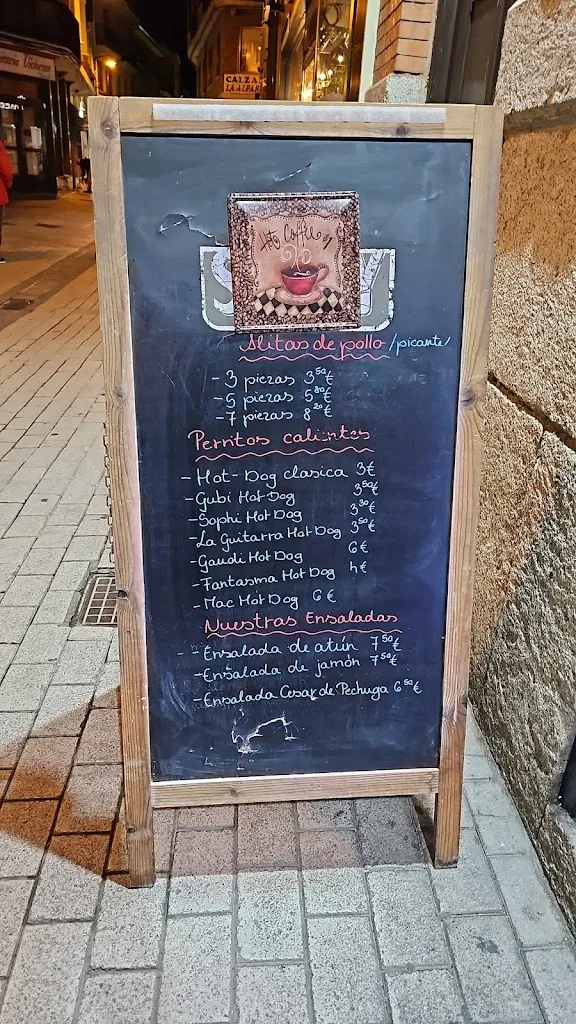 CALZA
LA ALPAR
Hot Coffee
S Y
Alitas de pollo /picante
- 3 piezas 3,50€
- 5 piezas 5,80€
- 7 piezas 8,20€
Perritos calientes
- Hot-Dog clasica 3€
- Gubi Hot Dog 3,50€
- Sophi Hot Dog 3,30€
- La Guitarra Hot Dog 3,50€
- Gaudi Hot Dog 6€
- Fantasma Hot Dog 4€
- Mac Hot Dog 6€
Nuestras Ensaladas
- Ensalada de atún 7,50€
- Ensalada de jamón 7,50€
- Ensalada Cesar de Pechuga 6,50€